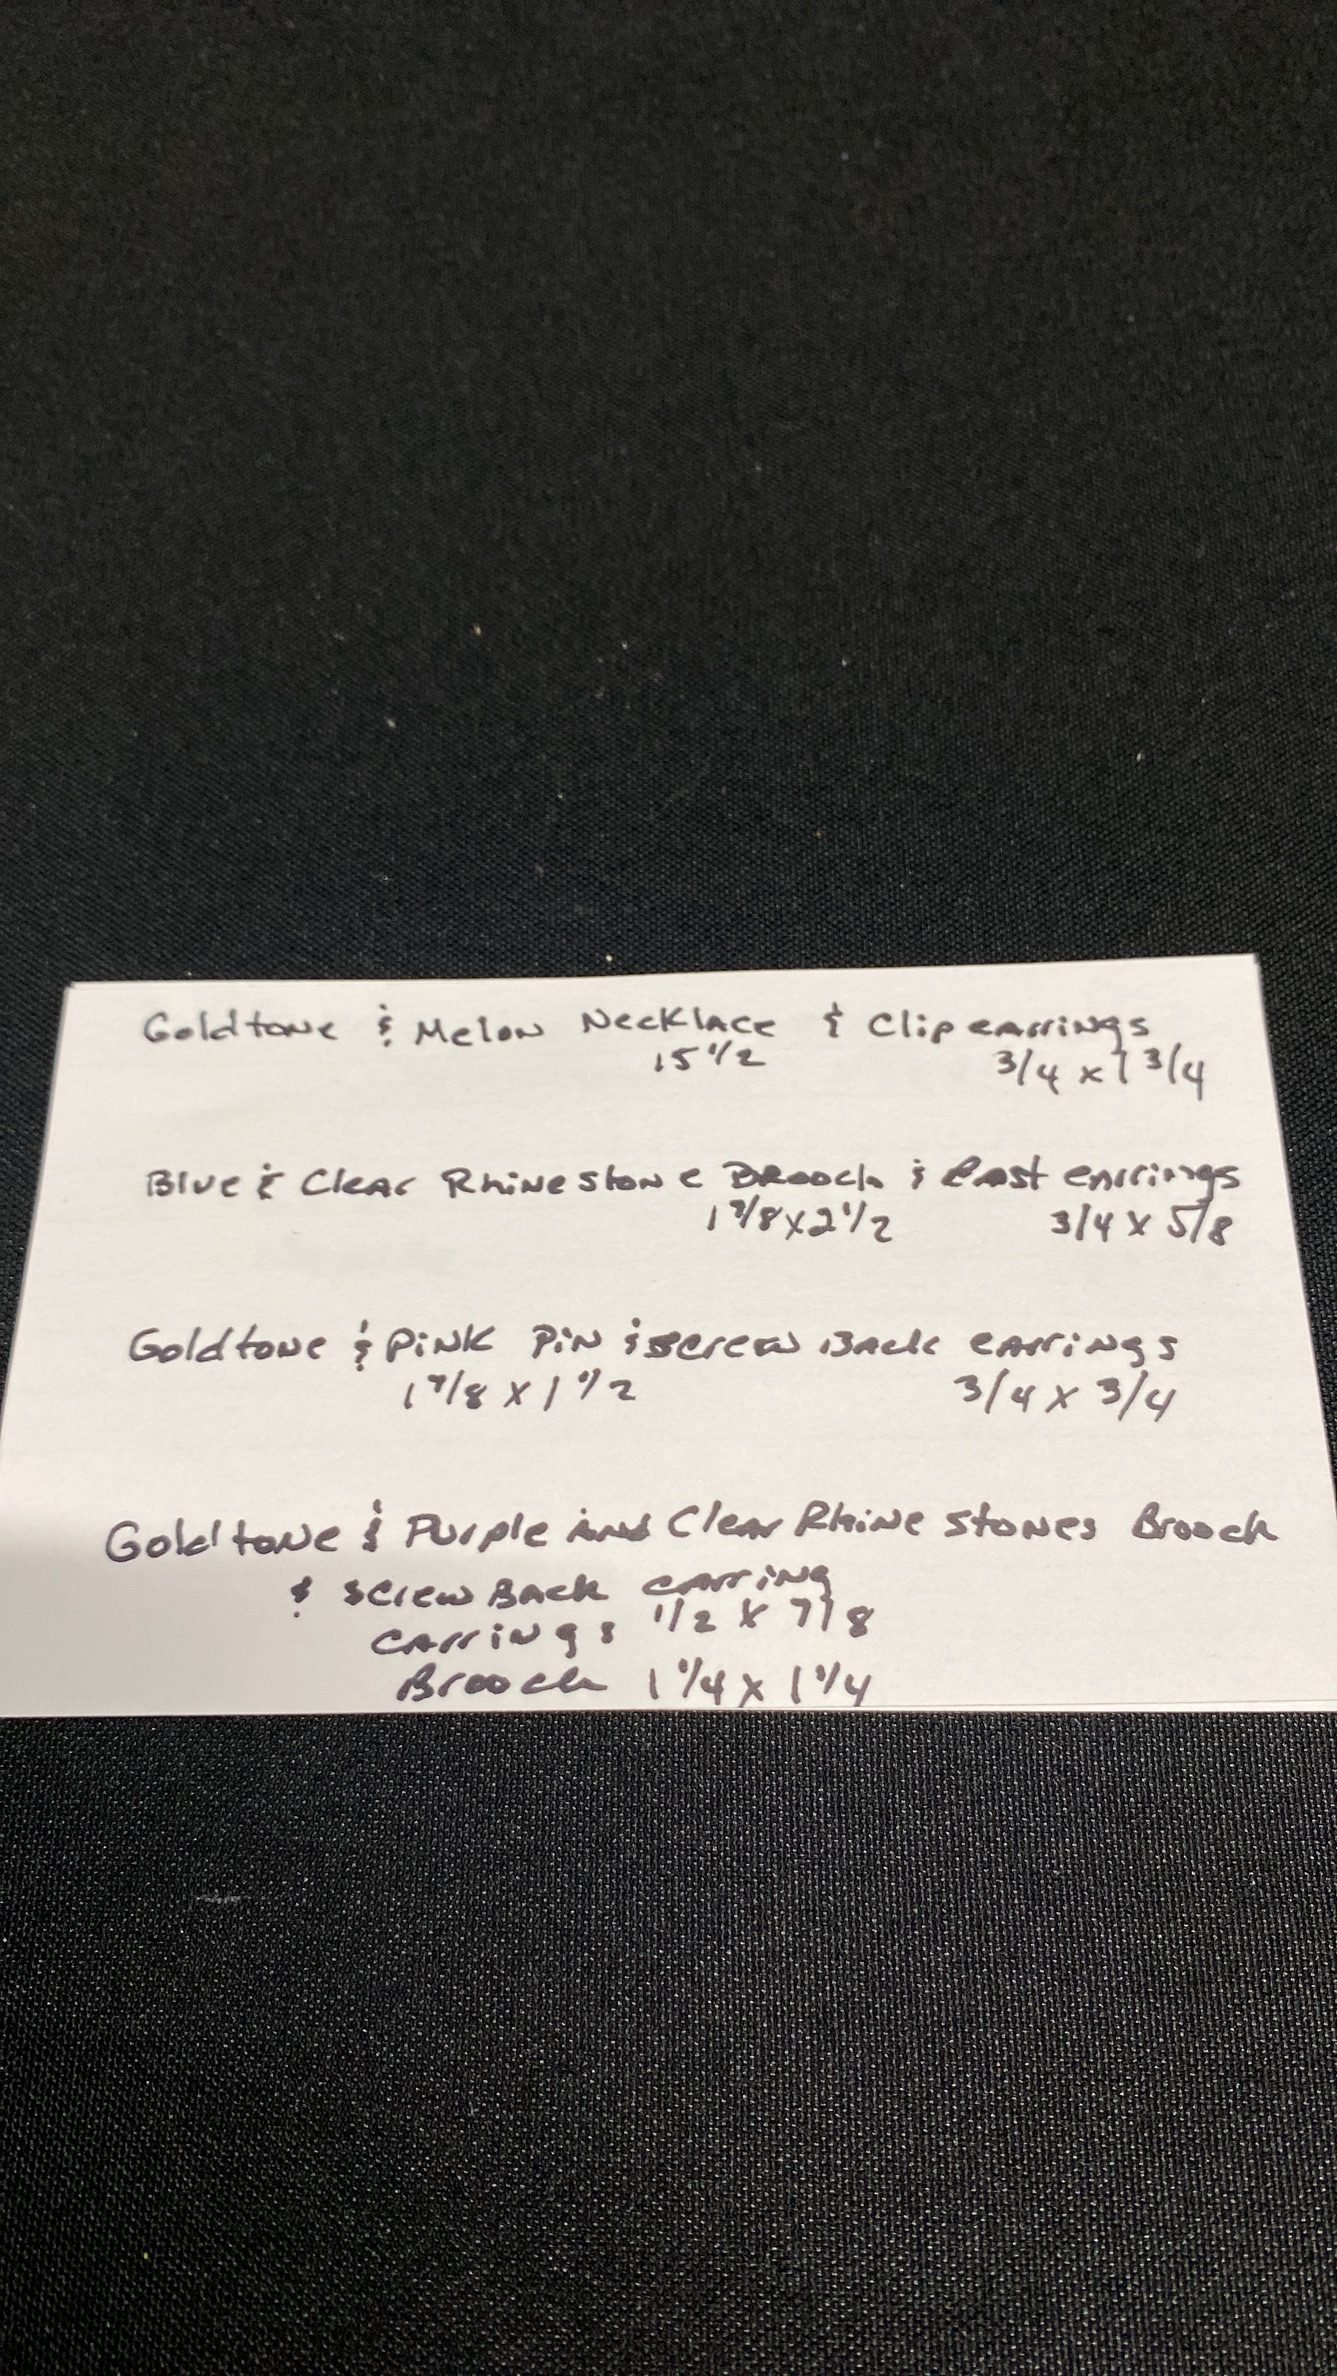 Goldtone & Melon Necklace & Clip earrings
15 1/2 3/4 x 1 3/4
Blue & Clear Rhinestone Brooch & Post earrings
1 7/8 x 2 1/2 3/4 x 5/8
Goldtone & Pink Pin & screw Back earrings
1 7/8 x 1 1/2 3/4 x 3/4
Goldtone & Purple and Clear Rhine stones Brooch
& screw Back earring
earrings 1/2 x 7/8
Brooch 1 1/4 x 1 1/4